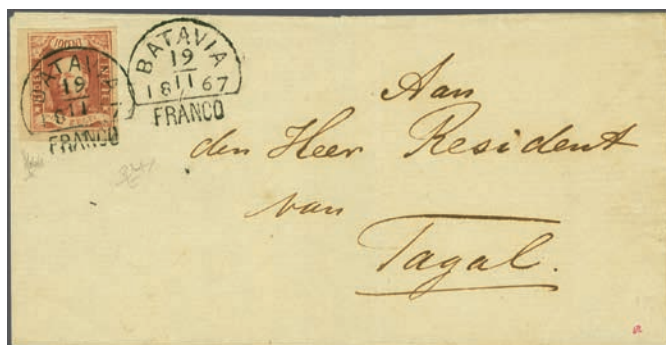 BATAVIA
19
11
1867
FRANCO
ATAVIA
19
11
18 7
FRANCO
Aan
den Heer Resident
van
Tagal.